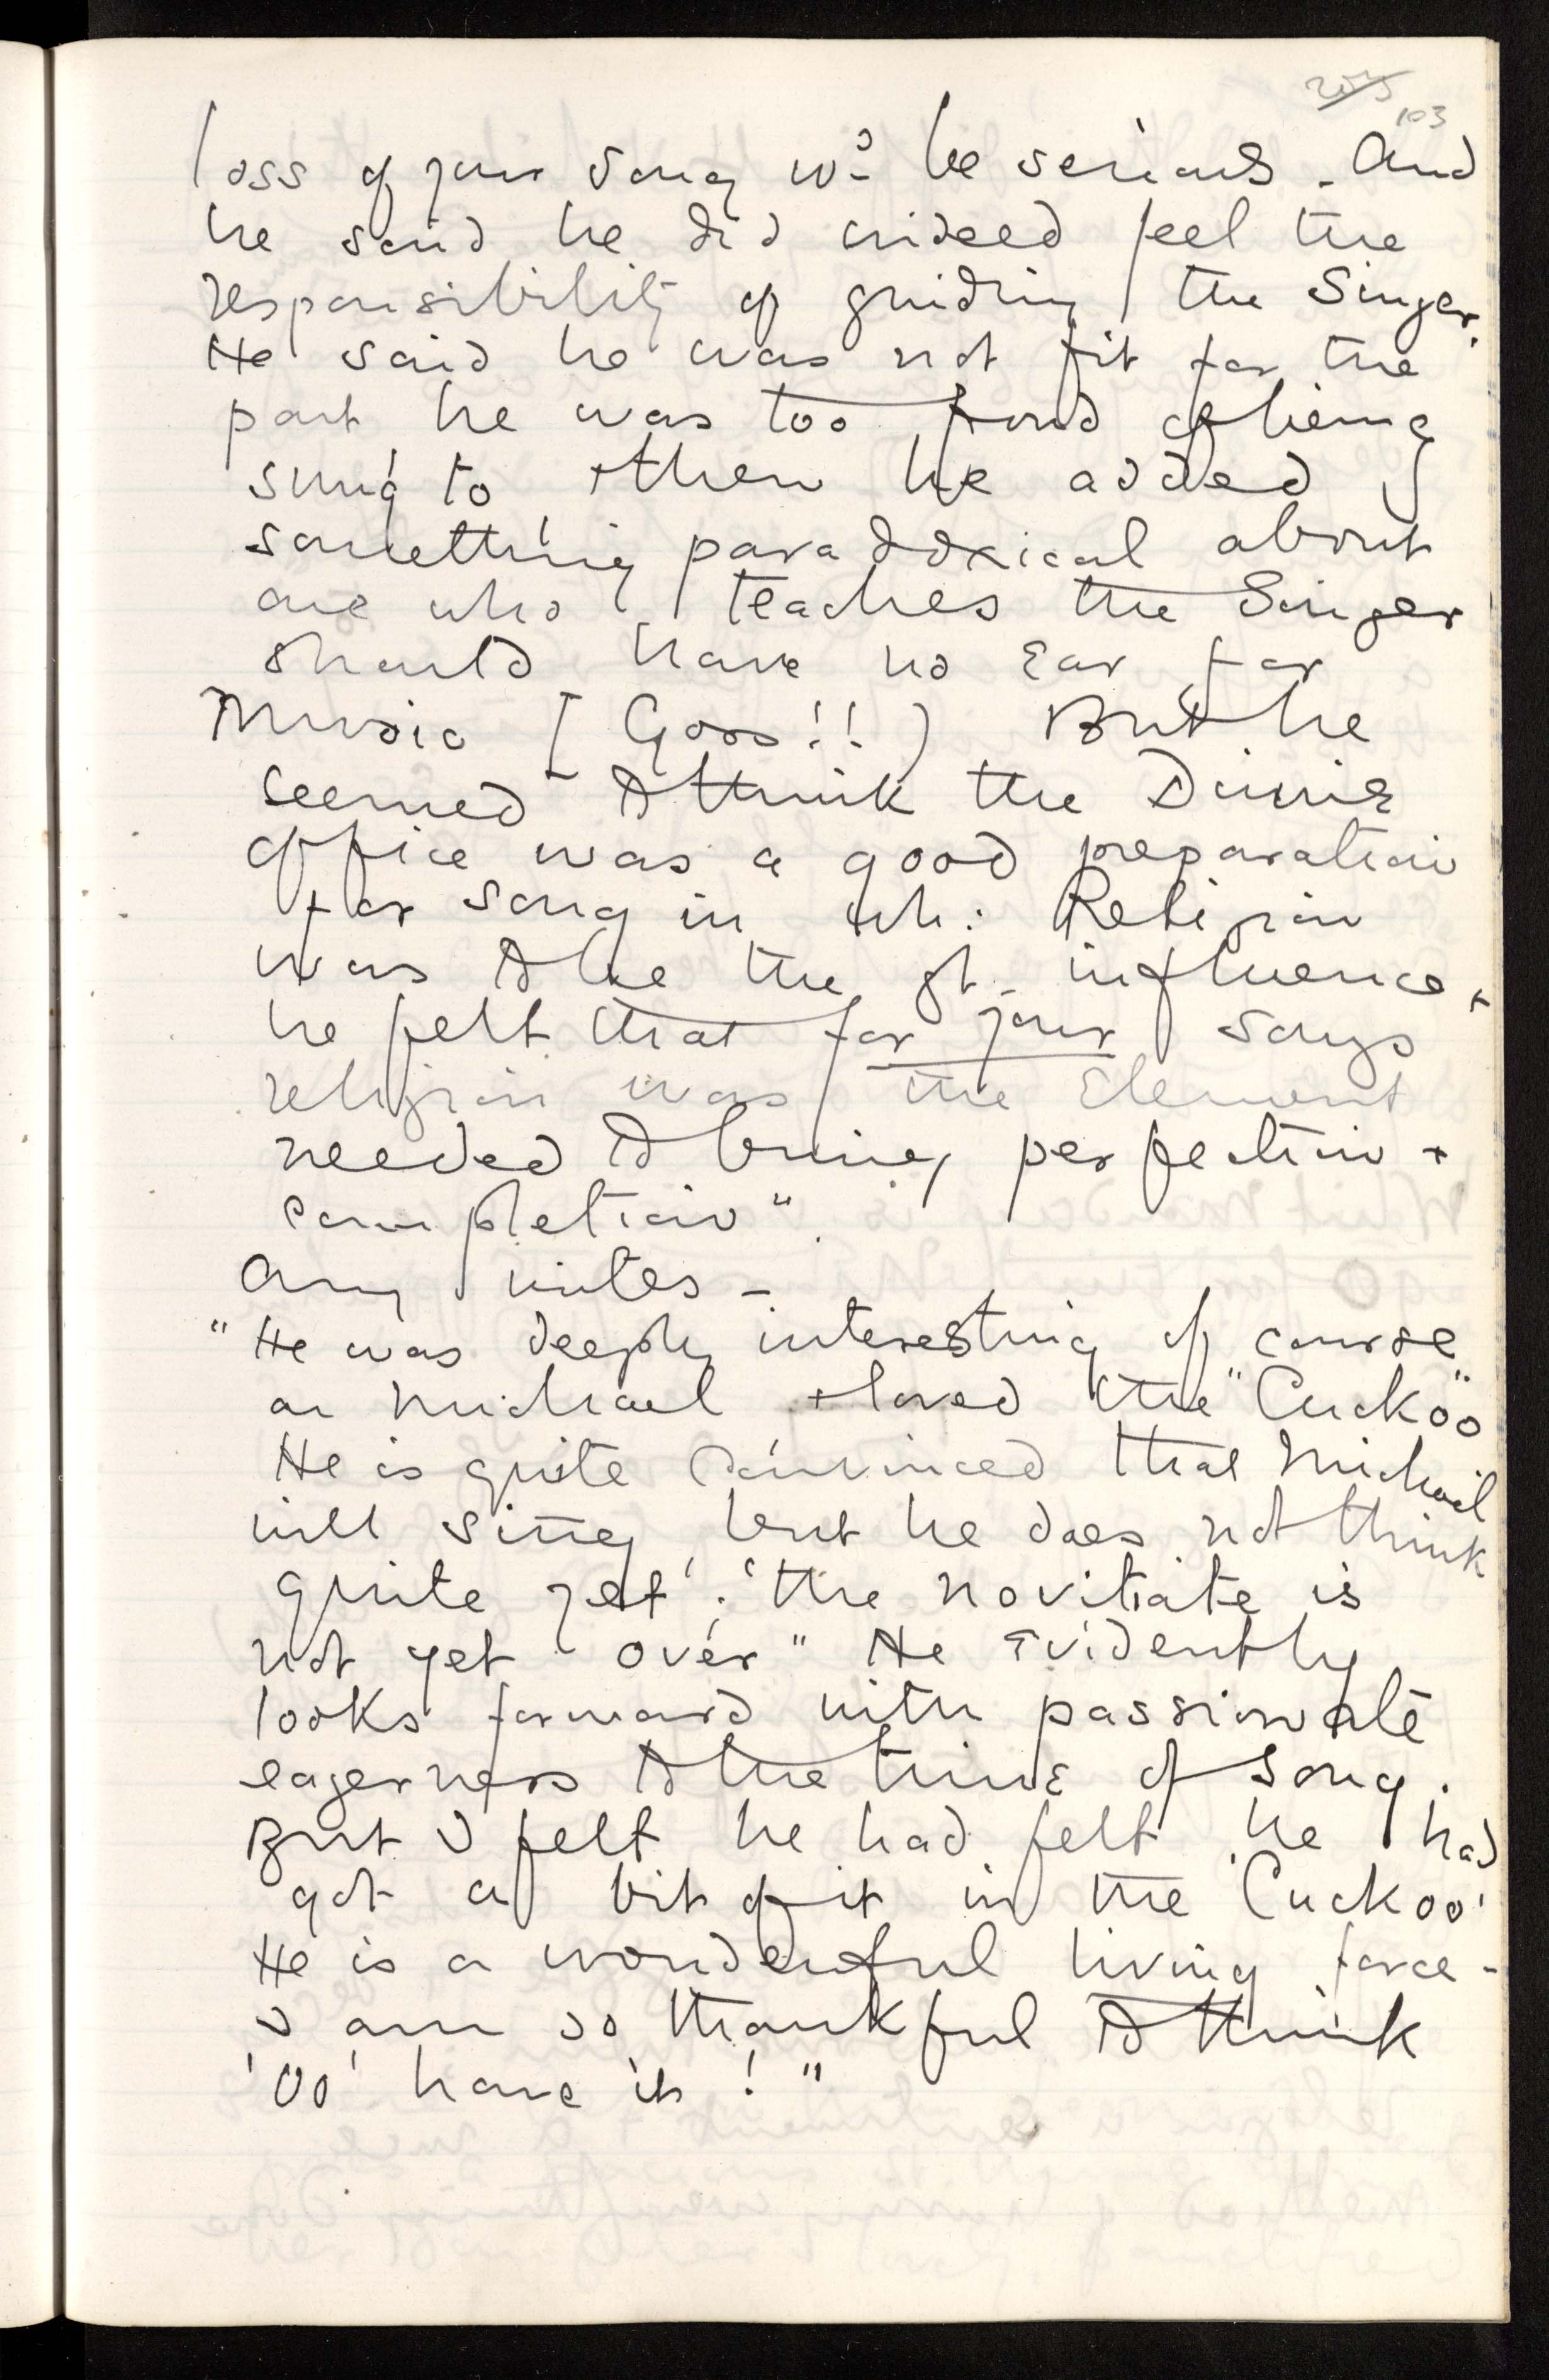 103
loss of your song wd be serious. And
he said he did indeed feel the
responsibility of guiding the Singer.
He said he was not fit for the
part he was too fond of being
sung to + then he added
something paradoxical about
one who teaches the Singer
should have no ear for
Music [Goss!!) But he
seemed to think the Divine
office was a good preparation
for song in wh: Religion
was to be the gt. influence +
he felt that for your songs
religion was the Element
needed to bring perfection +
completion".
Amy writes -
"He was deeply interesting of course
on Michael + loved the "Cuckoo"
He is quite convinced that Michael
will sing, but he does not think
quite yet'. 'the novitiate is
not yet over" He Evidently
looks forward with passionate
eagerness to the time of Song.
But I felt he had felt he had
got a bit of it in the 'Cuckoo'
He is a wonderful living force -
I am so thankful to think
'Oo' have it!"